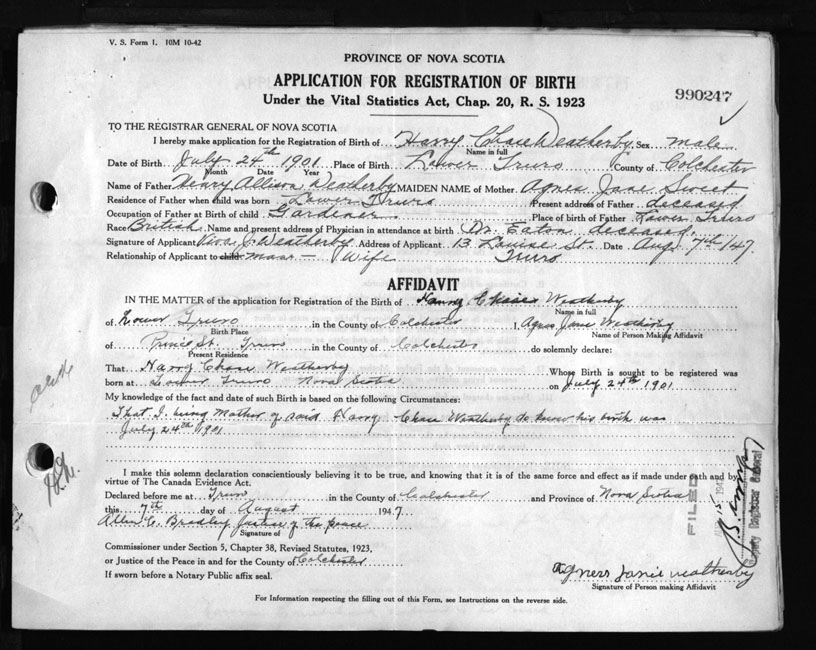 V. S. Form 1. 10M 10-42
PROVINCE OF NOVA SCOTIA
APPLICATION FOR REGISTRATION OF BIRTH
Under the Vital Statistics Act, Chap. 20, R. S. 1923
990247
TO THE REGISTRAR GENERAL OF NOVA SCOTIA
I hereby make application for Registration of Birth of Harry Chase Weatherby Sex male
Name in full
Date of Birth July 24th 1901 Place of Birth Lower Truro County of Colchester
Month Date Year
Name of Father Henry Allison Weatherby MAIDEN NAME of Mother Agnes Jane Sweet
Residence of Father when child was born Lower Truro Present address of Father deceased
Occupation of Father at Birth of child Gardener Place of birth of Father Lower Truro
Race British Name and present address of Physician in attendance at birth Dr. Eaton deceased
Signature of Applicant C. Weatherby Address of Applicant 13 Louise St. Date Aug 7th/47
Relationship of Applicant to child Wife Truro
AFFIDAVIT
IN THE MATTER of the application for Registration of the Birth of Harry Chase Weatherby
of Lower Truro in the County of Colchester I, Agnes Jane Weatherby
Birth Place Name of Person Making Affidavit
of St. Truro in the County of Colchester do solemnly declare:
Present Residence
That Harry Chase Weatherby Whose Birth is sought to be registered was
born at Lower Truro Nova Scotia on July 24th 1901
My knowledge of the fact and date of such Birth is based on the following Circumstances:
That I being Mother of said Harry Chase Weatherby do know his birth was
July 24th 1901
I make this solemn declaration conscientiously believing it to be true, and knowing that it is of the same force and effect as if made under oath and by
virtue of The Canada Evidence Act.
Declared before me at Truro in the County of Colchester and Province of Nova Scotia
this 7th day of August 1947
Allen C. Bradley Justice of the peace
Signature of
Commissioner under Section 5, Chapter 38, Revised Statutes, 1923,
or Justice of the Peace in and for the County of Colchester
If sworn before a Notary Public affix seal.
Agness Janie Weatherby
Signature of Person making Affidavit
For Information respecting the filling out of this Form, see Instructions on the reverse side.
FILED
Deputy Registrar General